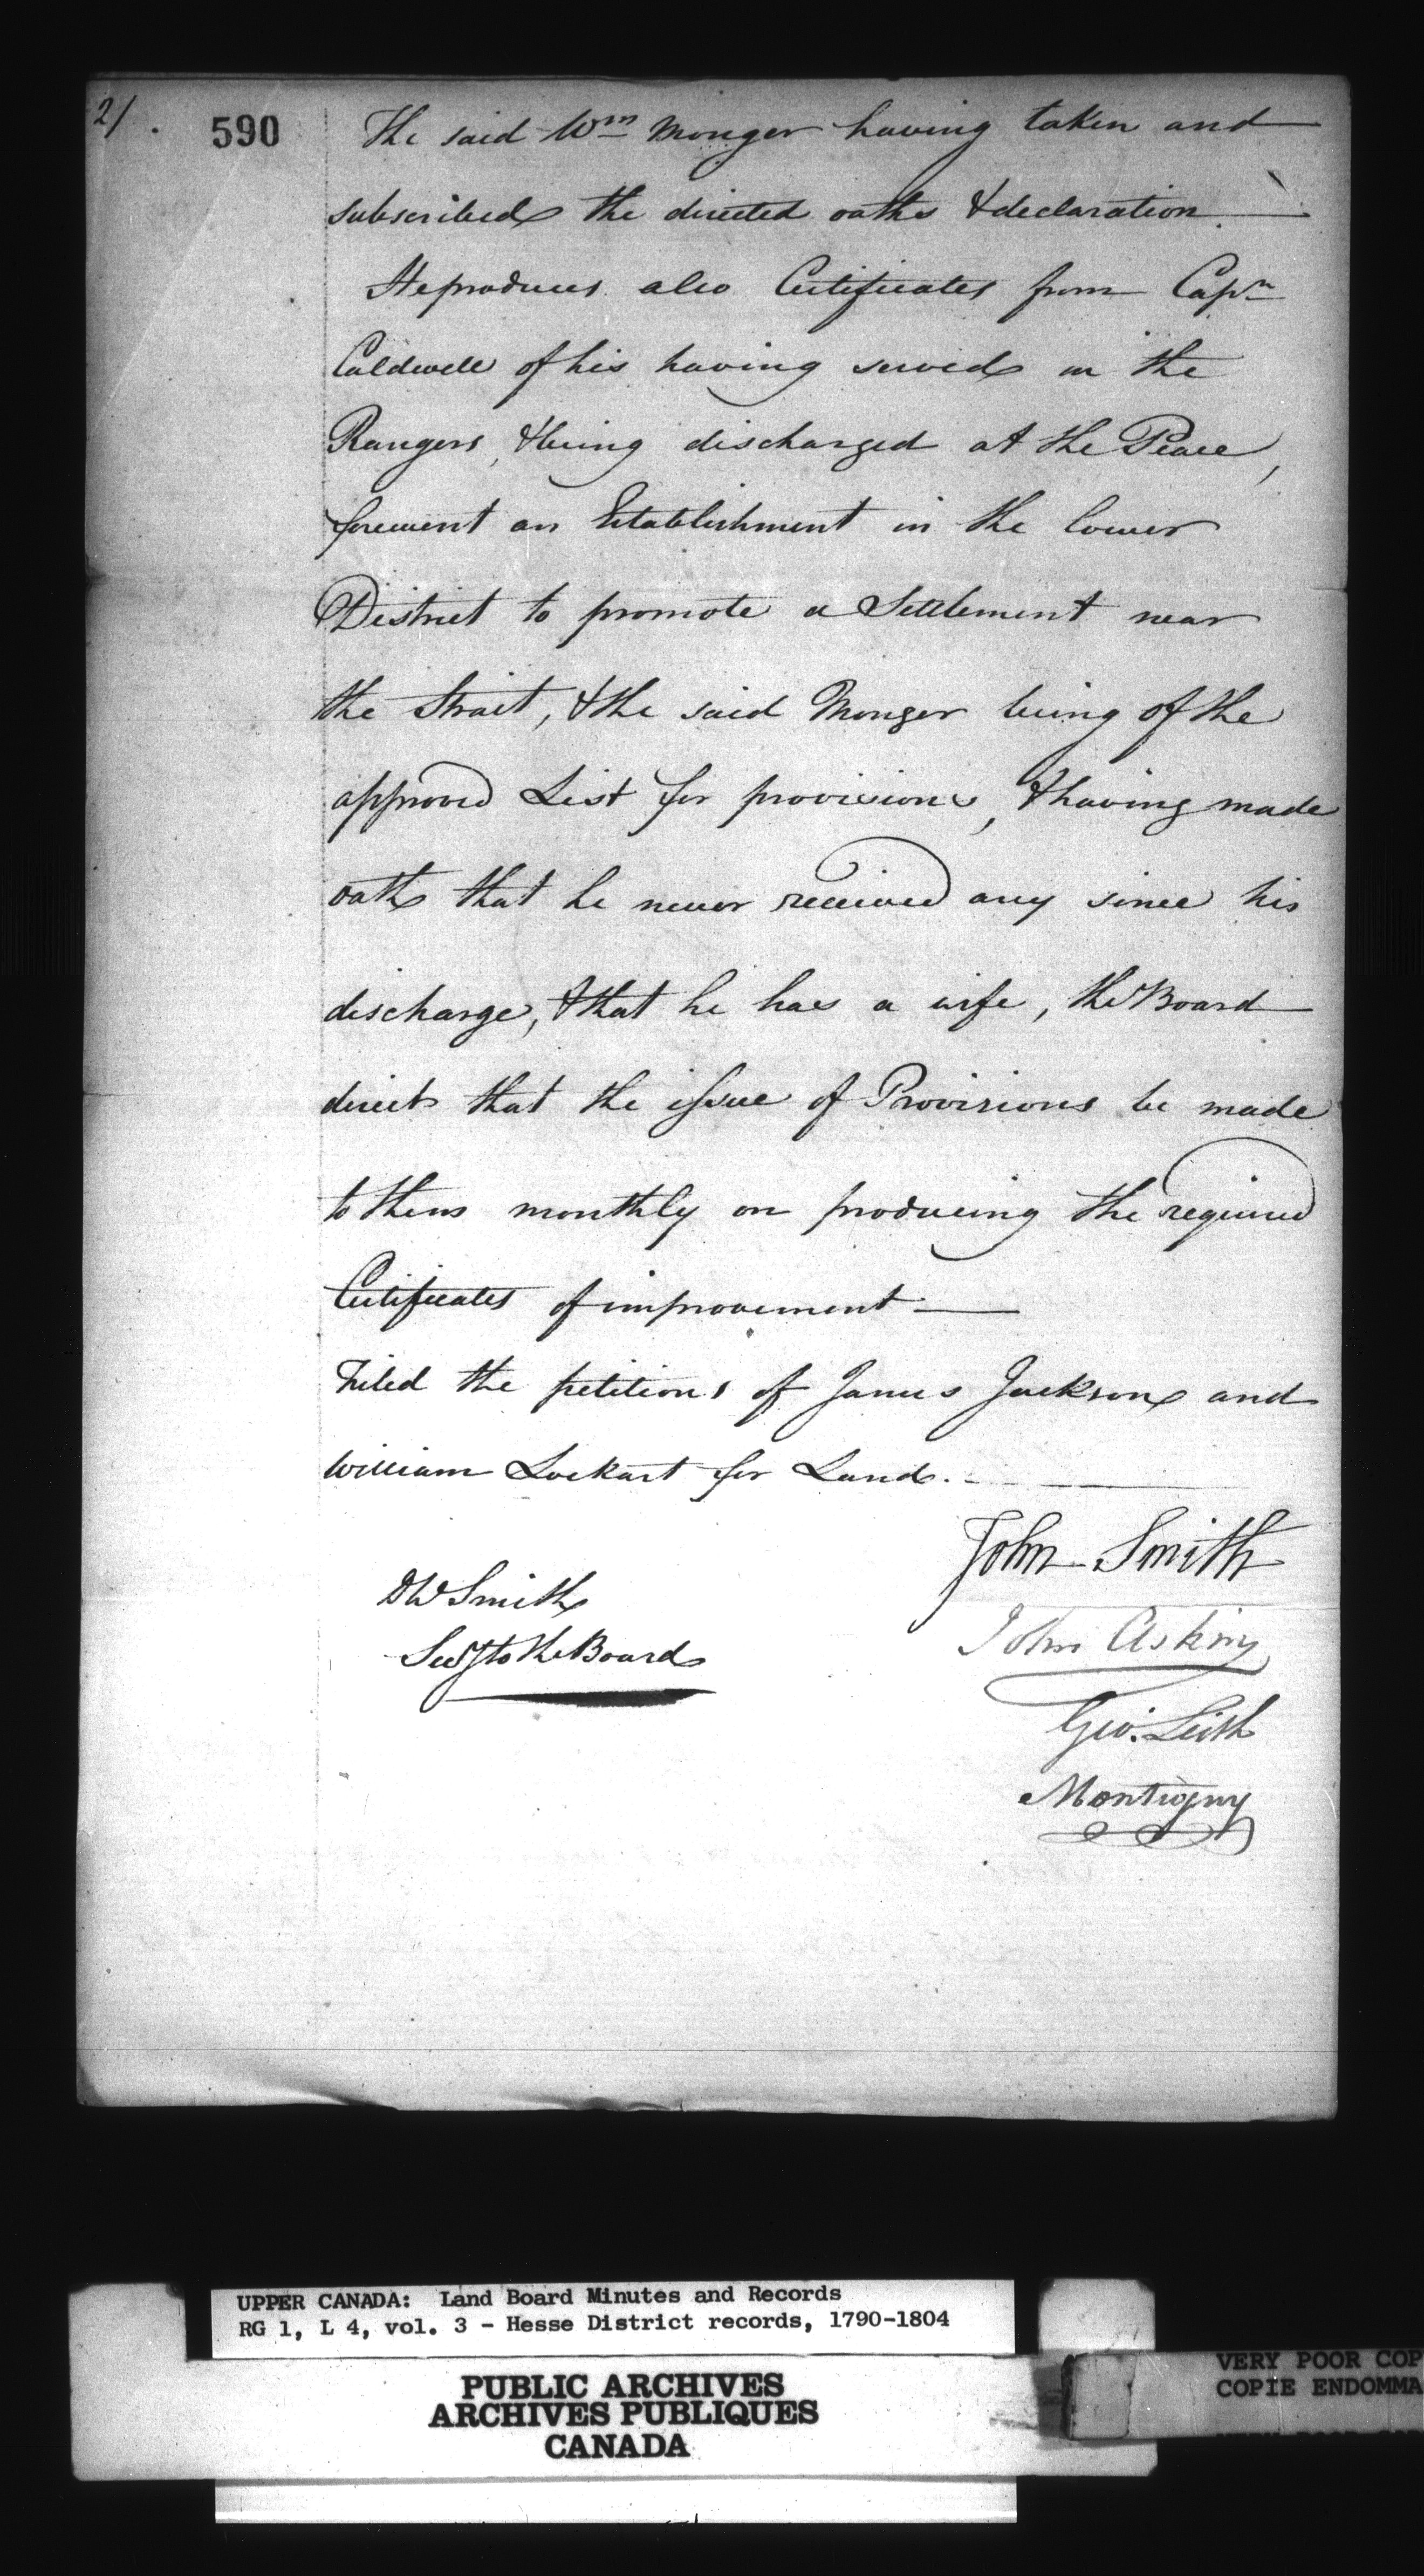 21.
590
The said Wm Monger having taken and
subscribed the directed oaths & declaration
He produces also Certificates from Capn
Caldwell of his having served in the
Rangers, & being discharged at the Peace,
forewent an Establishment in the lower
District to promote a Settlement near
the Strait, & the said Monger being of the
approved List for provisions, & having made
oath that he never received any since his
discharge, & that he has a wife, the Board
direct that the issue of Provisions be made
to them monthly on producing the required
Certificates of improvement
Filed the petitions of James Jackson and
William Lockart for Land.
John Smith
DW Smith
Secy to the Board
John Askin
Geo. Leith
Montigny
UPPER CANADA: Land Board Minutes and Records
RG 1, L 4, vol. 3 - Hesse District records, 1790-1804
PUBLIC ARCHIVES
ARCHIVES PUBLIQUES
CANADA
VERY POOR COP
COPIE ENDOMMA